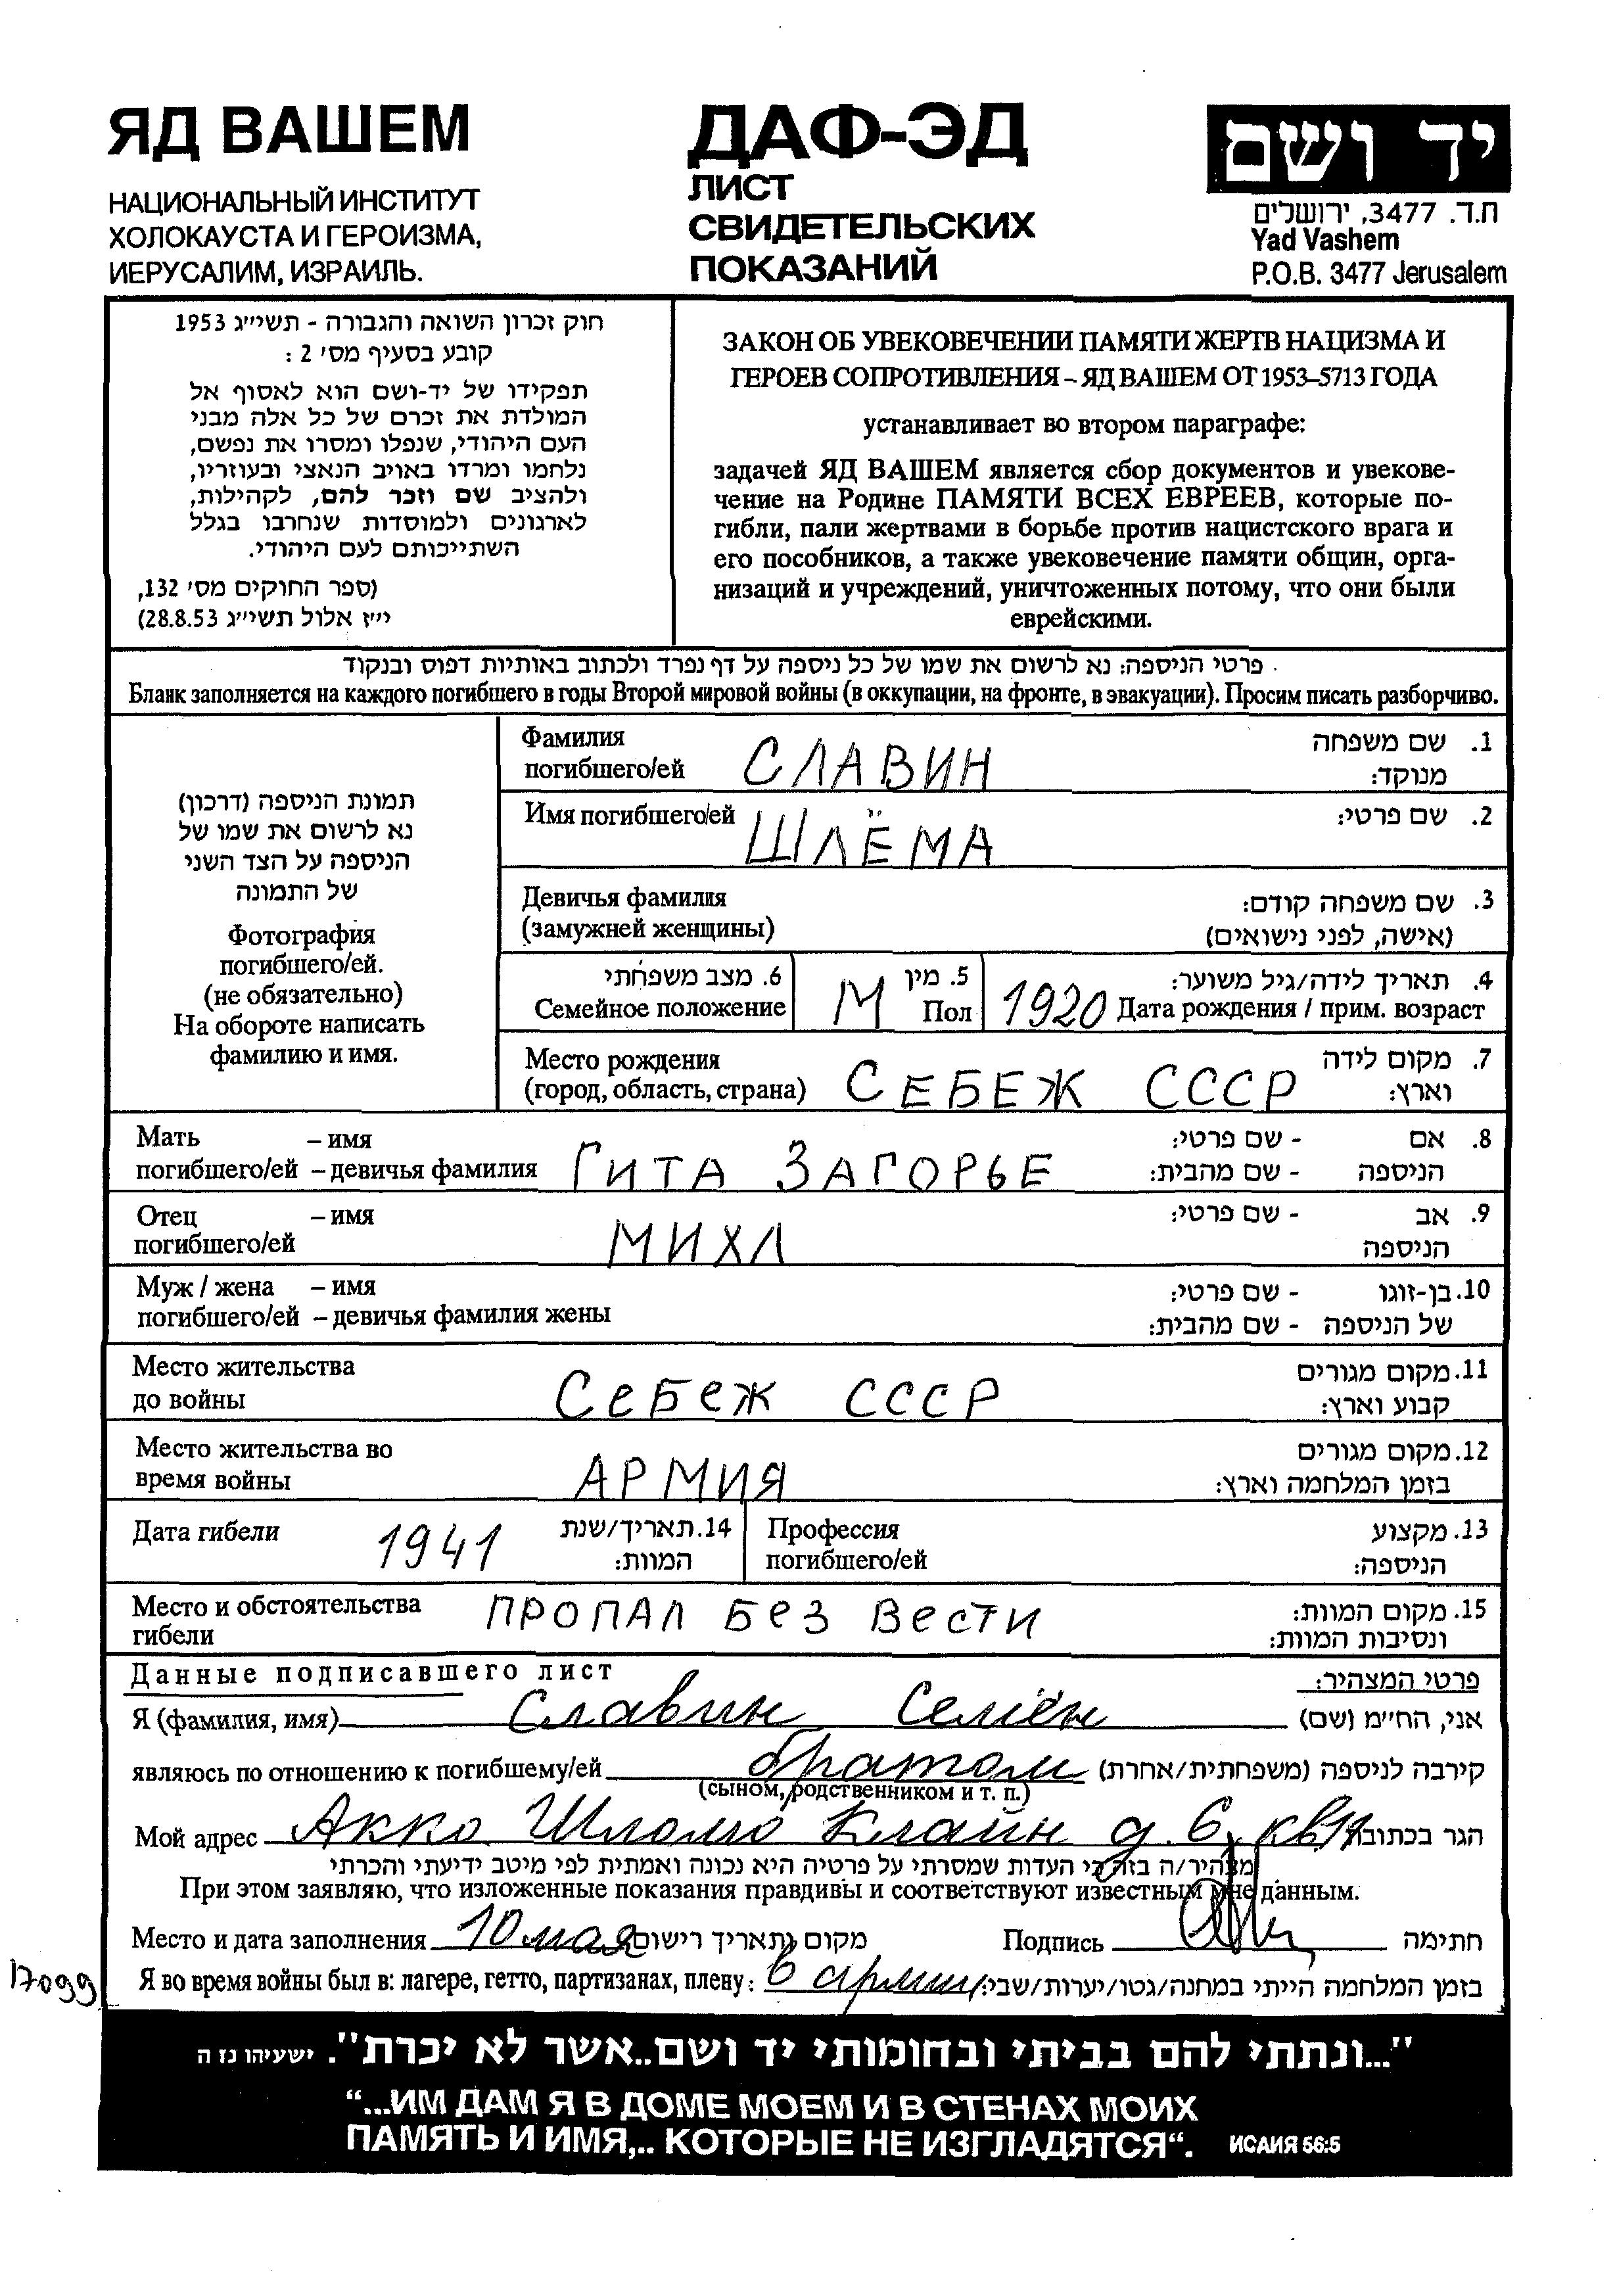 ЯД ВАШЕМ
НАЦИОНАЛЬНЫЙ ИНСТИТУТ
ХОЛОКАУСТА И ГЕРОИЗМА,
ИЕРУСАЛИМ, ИЗРАИЛЬ.
ДАФ-ЭД
ЛИСТ
СВИДЕТЕЛЬСКИХ
ПОКАЗАНИЙ
יד ושם
ת.ד. 3477, ירושלים
Yad Vashem
P.O.B. 3477 Jerusalem
חוק זכרון השואה והגבורה - תשי״ג 1953
קובע בסעיף מס׳ 2 :
תפקידו של יד-ושם הוא לאסוף אל
המולדת את זכרם של כל אלה מבני
העם היהודי, שנפלו ומסרו את נפשם,
נלחמו ומרדו באויב הנאצי ובעוזריו,
ולהציב שם וזכר להם, לקהילות,
לארגונים ולמוסדות שנחרבו בגלל
השתייכותם לעם היהודי.
(ספר החוקים מס׳ 132,
י״ז אלול תשי״ג 28.8.53)
ЗАКОН ОБ УВЕКОВЕЧЕНИИ ПАМЯТИ ЖЕРТВ НАЦИЗМА И
ГЕРОЕВ СОПРОТИВЛЕНИЯ – ЯД ВАШЕМ ОТ 1953–5713 ГОДА
устанавливает во втором параграфе:
задачей ЯД ВАШЕМ является сбор документов и увекове-
чение на Родине ПАМЯТИ ВСЕХ ЕВРЕЕВ, которые по-
гибли, пали жертвами в борьбе против нацистского врага и
его пособников, а также увековечение памяти общин, орга-
низаций и учреждений, уничтоженных потому, что они были
еврейскими.
פרטי הניספה: נא לרשום את שמו של כל ניספה על דף נפרד ולכתוב באותיות דפוס ובנקוד
Бланк заполняется на каждого погибшего в годы Второй мировой войны (в оккупации, на фронте, в эвакуации). Просим писать разборчиво.
תמונת הניספה (דרכון)
נא לרשום את שמו של
הניספה על הצד השני
של התמונה
Фотография
погибшего/ей.
(не обязательно)
На обороте написать
фамилию и имя.
Фамилия 1. שם משפחה
погибшего/ей СЛАВИН מנוקד:
Имя погибшего/ей ШЛЁМА 2. שם פרטי:
Девичья фамилия 3. שם משפחה קודם:
(замужней женщины) (אישה, לפני נישואים)
6. מצב משפחתי 5. מין 4. תאריך לידה/גיל משוער:
Семейное положение М Пол 1920 Дата рождения / прим. возраст
Место рождения 7. מקום לידה
(город, область, страна) СЕБЕЖ СССР וארץ:
Мать – имя 8. אם - שם פרטי:
погибшего/ей – девичья фамилия ГИТА ЗАГОРЬЕ הניספה - שם מהבית:
Отец – имя 9. אב - שם פרטי:
погибшего/ей МИХЛ הניספה
Муж / жена – имя 10. בן-זוגו - שם פרטי:
погибшего/ей – девичья фамилия жены של הניספה - שם מהבית:
Место жительства 11. מקום מגורים
до войны СЕБЕЖ СССР קבוע וארץ:
Место жительства во 12. מקום מגורים
время войны АРМИЯ בזמן המלחמה וארץ:
Дата гибели 1941 14. תאריך/שנת המוות:
Профессия погибшего/ей 13. מקצוע הניספה:
Место и обстоятельства ПРОПАЛ БЕЗ ВЕСТИ 15. מקום המוות:
гибели ונסיבות המוות:
Данные подписавшего лист פרטי המצהיר:
Я (фамилия, имя) Славин Семён אני, הח״מ (שם)
являюсь по отношению к погибшему/ей братом קירבה לניספה (משפחתית/אחרת)
(сыном, родственником и т. п.)
Мой адрес Акко Шломо Клайн д. 6, кв. הגר בכתובת
מצהיר/ה בזה כי העדות שמסרתי על פרטיה היא נכונה ואמתית לפי מיטב ידיעתי והכרתי
При этом заявляю, что изложенные показания правдивы и соответствуют известным мне данным.
Место и дата заполнения 10 мая מקום ותאריך רישום Подпись חתימה
Я во время войны был в: лагере, гетто, партизанах, плену: в армии בזמן המלחמה הייתי במחנה/גטו/יערות/שבי:
17099
"...ונתתי להם בביתי ובחומותי יד ושם..אשר לא יכרת". ישעיהו נז ה
“...ИМ ДАМ Я В ДОМЕ МОЕМ И В СТЕНАХ МОИХ
ПАМЯТЬ И ИМЯ,.. КОТОРЫЕ НЕ ИЗГЛАДЯТСЯ“. ИСАИЯ 56:5